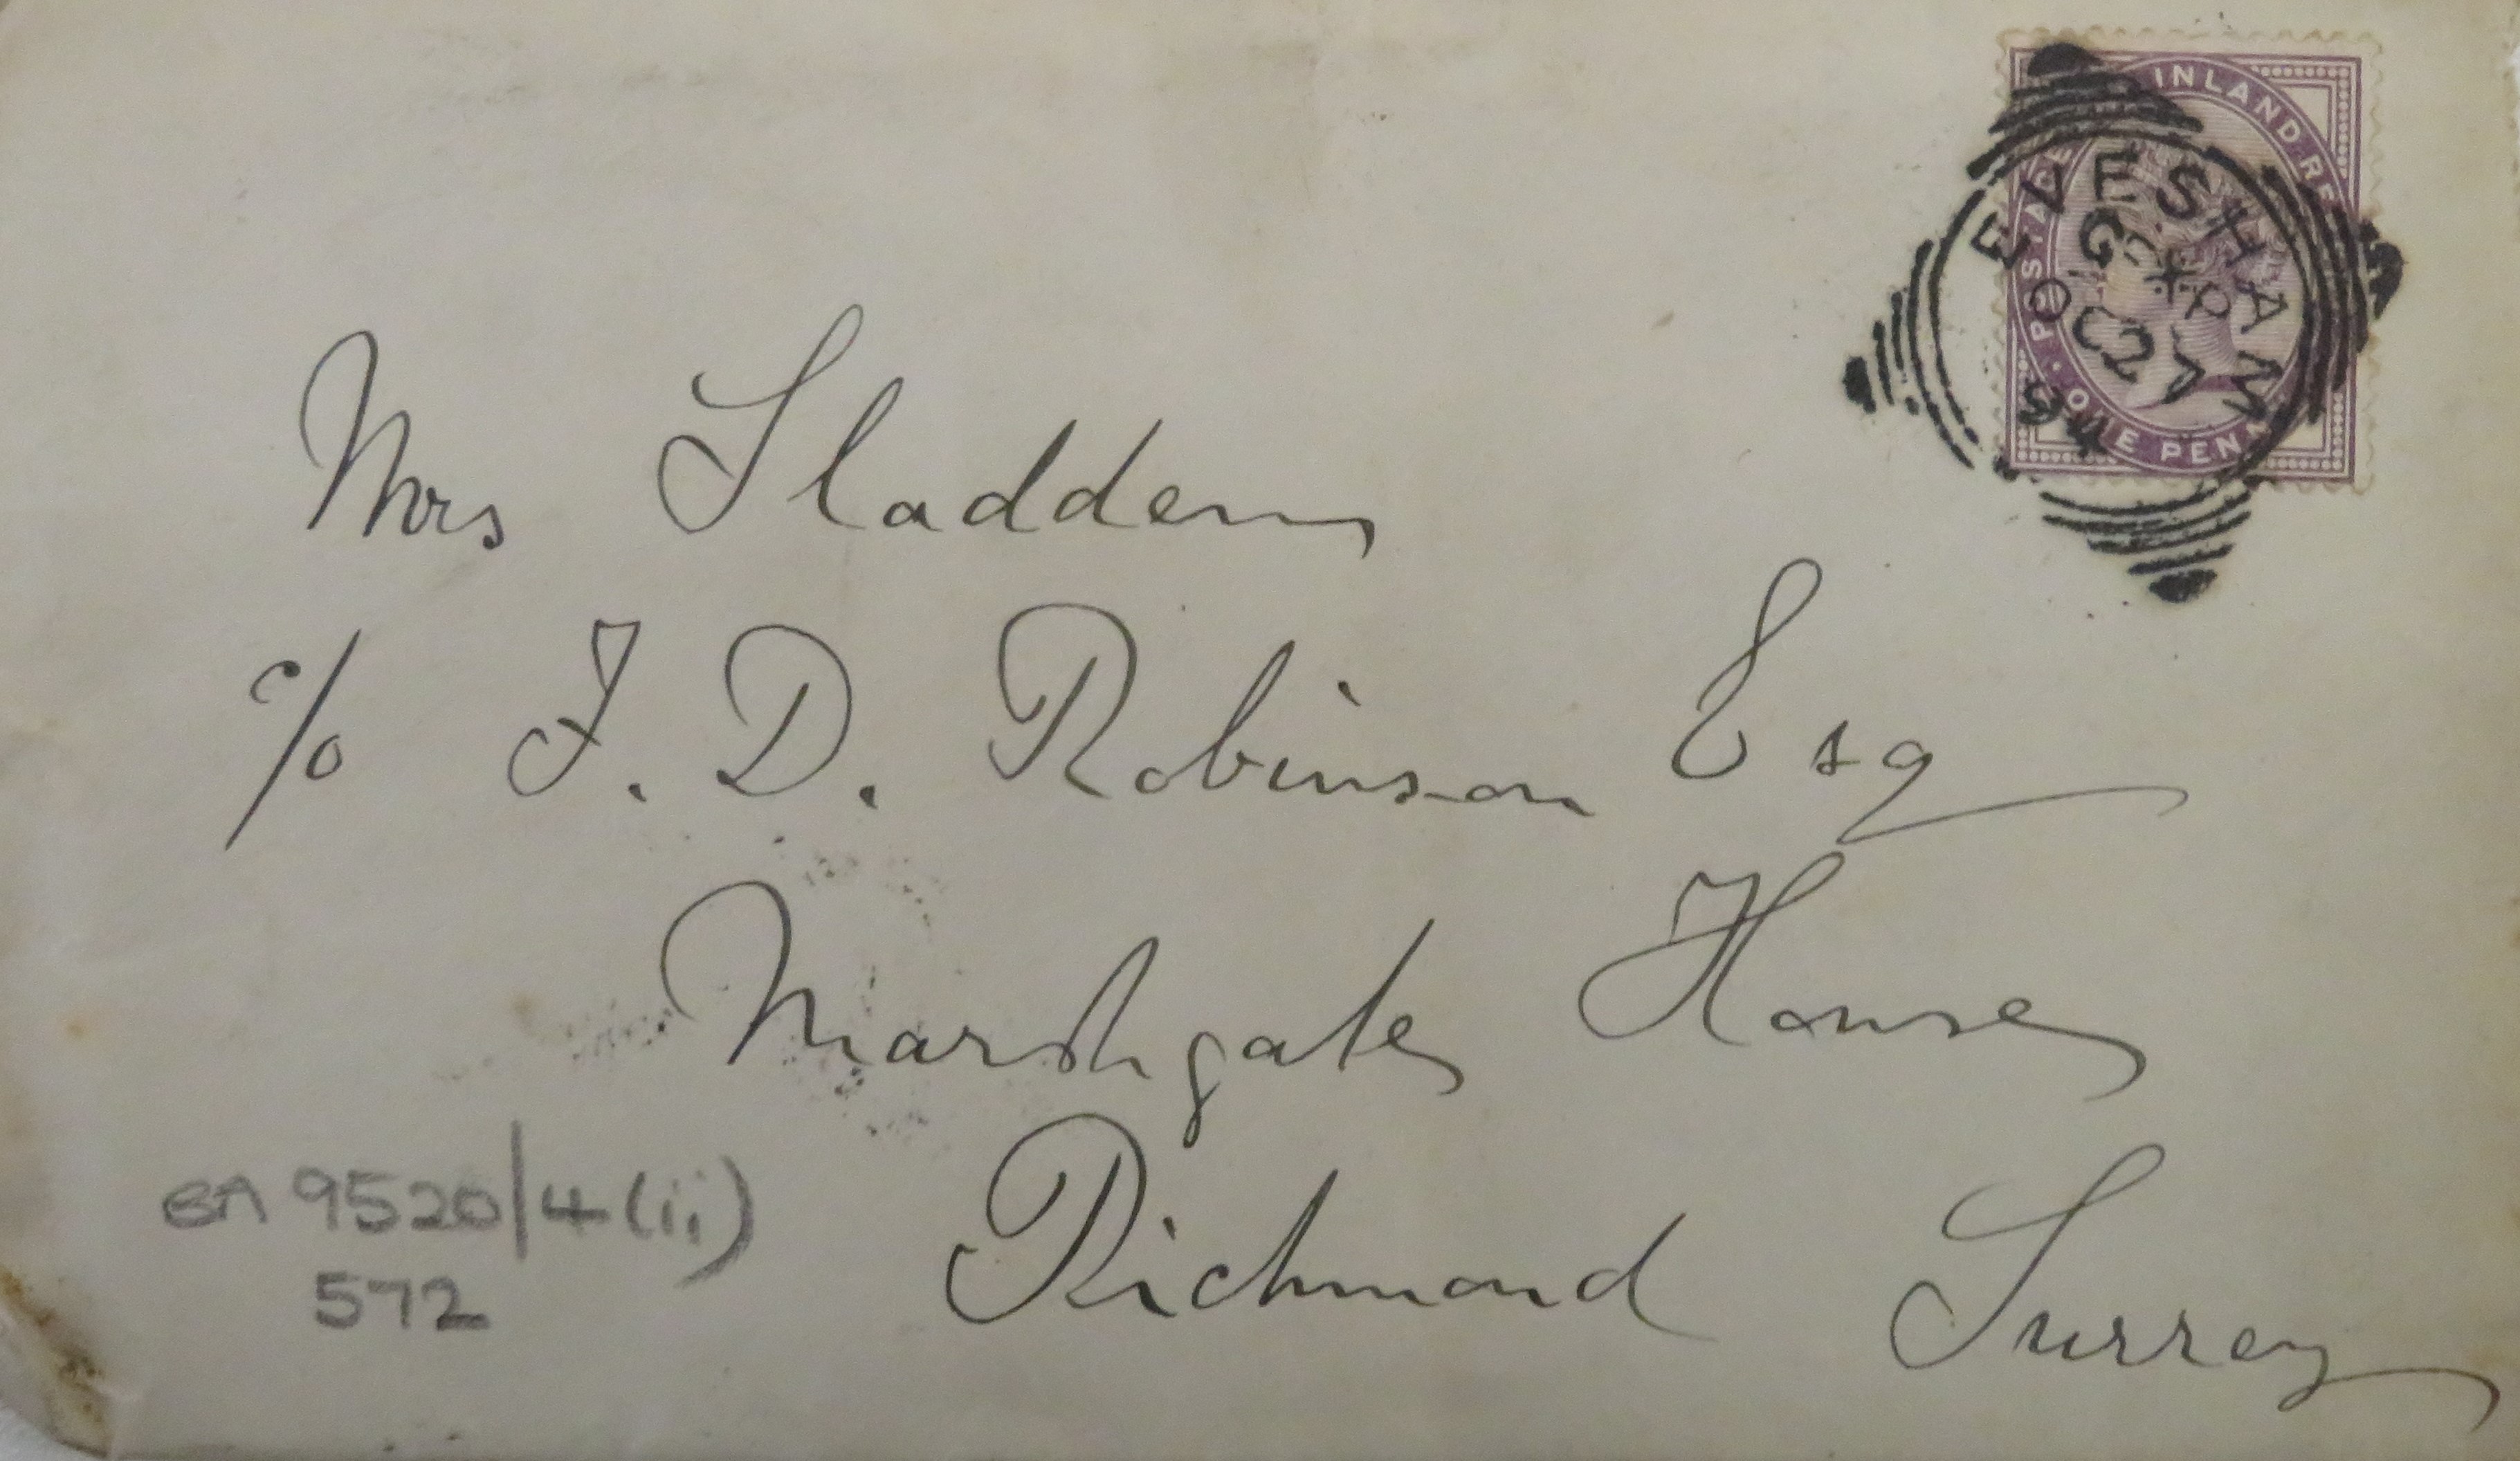 INLAND RE
POSTAGE
ONE PENN
EVESHAM
OC 27
94
Mrs Sladden
c/o J. D. Robinson Esq
Marshgate House
Richmond Surrey
BA 9520/4(ii)
572